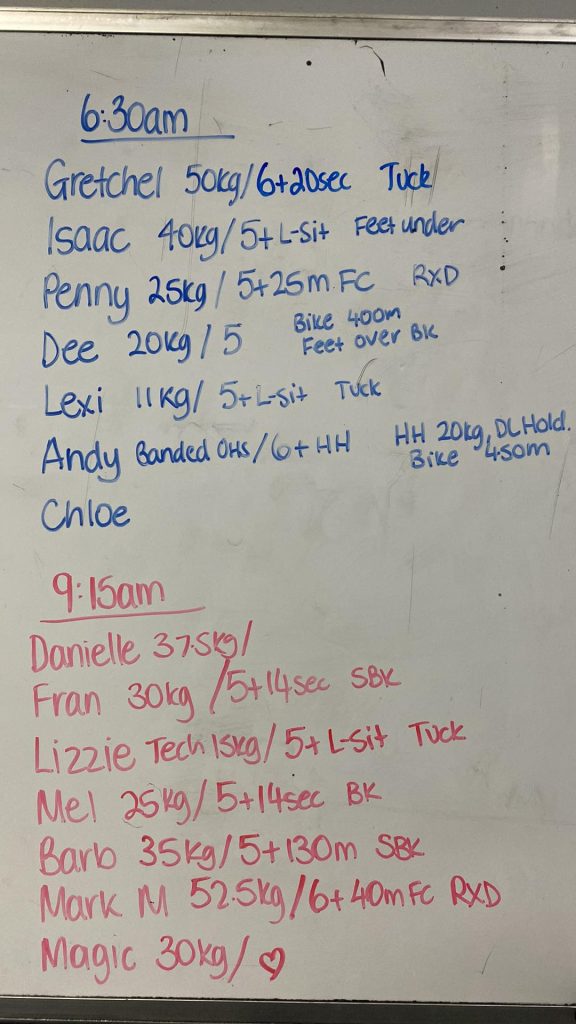 6:30am
Gretchel 50kg/6+20sec Tuck
Isaac 40kg/5+L-Sit Feet under
Penny 25kg/5+25m FC RxD
Dee 20kg/5 Bike 400m
Feet over BK
Lexi 11kg/5+L-Sit Tuck
Andy Banded OHS/6+HH HH 20kg, DL Hold.
Bike 450m
Chloe
9:15am
Danielle 37.5kg/
Fran 30kg/5+14sec SBK
Lizzie Tech 15kg/5+L-Sit Tuck
Mel 25kg/5+14sec BK
Barb 35kg/5+130m SBK
Mark M 52.5kg/6+40m FC RXD
Magic 30kg/♡